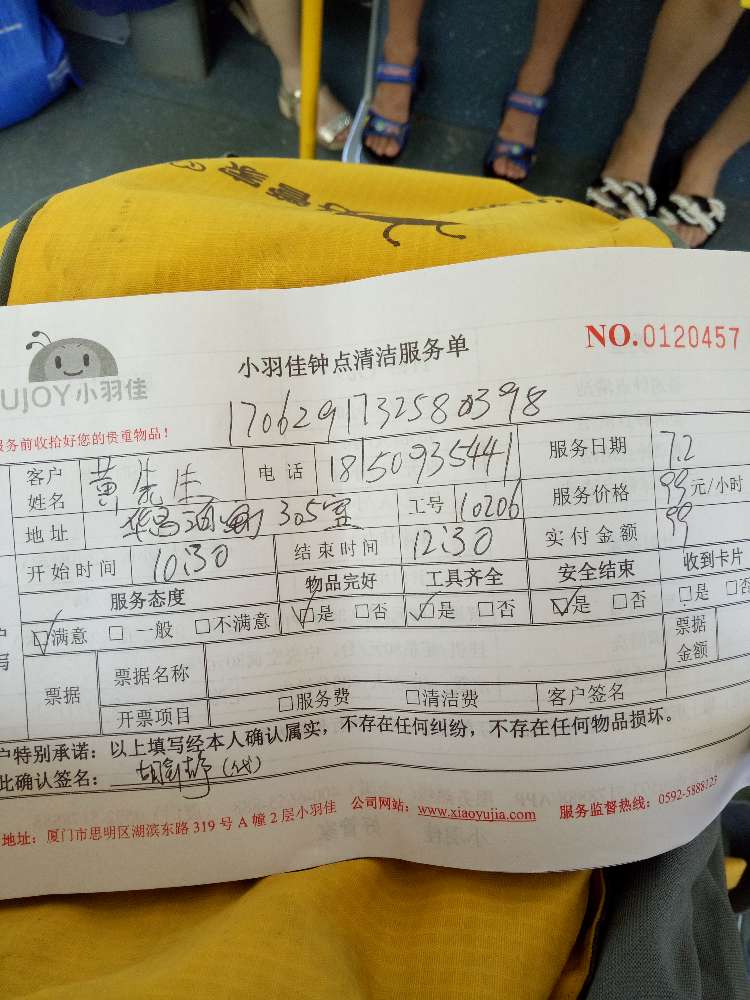 小羽佳钟点清洁服务单
NO.0120457
UJOY小羽佳
1706291732580398
服务前收拾好您的贵重物品！
客户姓名 黄先生 电话 18150935441 服务日期 7.2
地址 305室 工号 10206 服务价格 99元/小时
开始时间 10:30 结束时间 12:30 实付金额 99
服务态度 物品完好 工具齐全 安全结束 收到卡片
☑满意 □一般 □不满意 ☑是 □否 ☑是 □否 ☑是 □否 □是 □否
票据 票据名称 票据金额
开票项目 □服务费 □清洁费 客户签名
户特别承诺：以上填写经本人确认属实，不存在任何纠纷，不存在任何物品损坏。
此确认签名： (代)
地址：厦门市思明区湖滨东路319号A幢2层小羽佳 公司网站：www.xiaoyujia.com 服务监督热线：0592-5888123